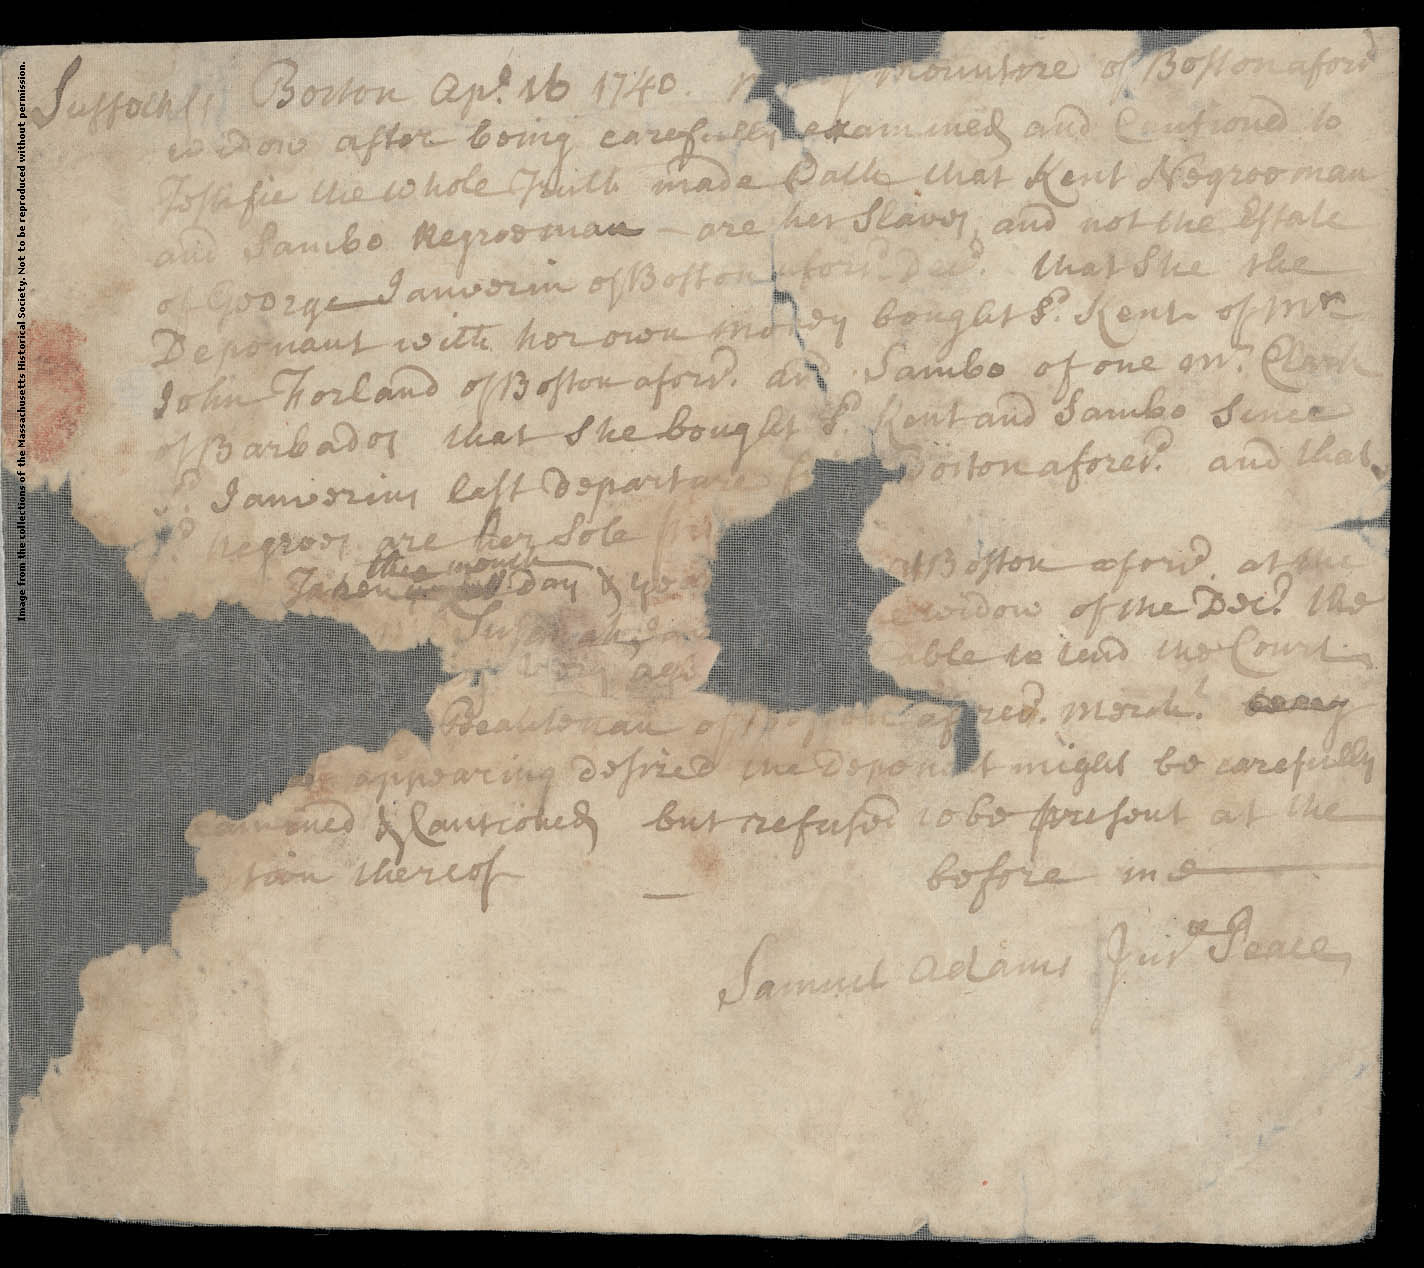 Suffolk ss Boston Apr.l 16 1740. M of Boston aford
widow after being carefully examined and Cautioned to
Testifie the whole Truth made Oath that Kent Negrooman
and Sambo Negrooman - are her Slaves, and not the Estate
of George Janverin of Boston aford Decd. that She the
Deponant with her own money bought sd. Kent of Mr
John Forland of Boston aford. and Sambo of one Mr. Clark
of Barbados that She bought sd. Kent and Sambo Since
sd. Janverins last departure Boston afores.d and that
sd negroos are her Sole
the month
Taken day & year at Boston aford. at the
Susanah widow of the Decd. the
very age able to tend the Court
of afored. Merch.t being
appearing desired the Deponent might be carefully
examined & Cautioned but refused to be present at the
tion thereof — before me
Samuel Adams Jus Peace
Image from the collections of the Massachusetts Historical Society. Not to be reproduced without permission.